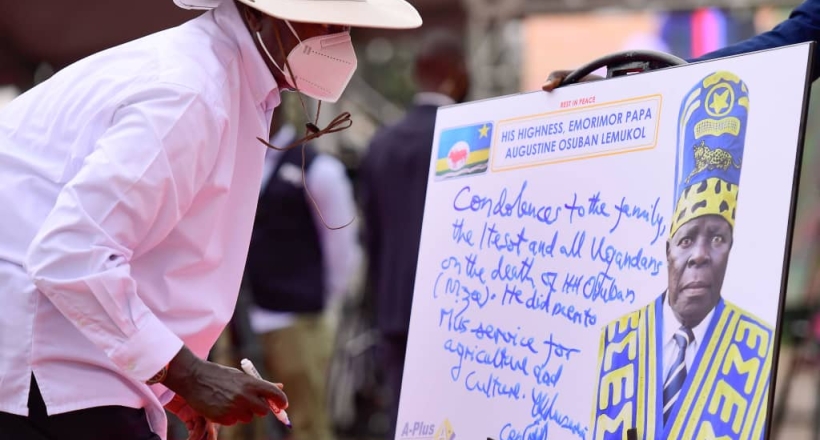 REST IN PEACE
HIS HIGHNESS, EMORIMOR PAPA
AUGUSTINE OSUBAN LEMUKOL
Condolences to the family,
the Itesot and all Ugandans
on the death of HH Osuban
(Mzee). He did
service for
agriculture and
Culture.
A-Plus